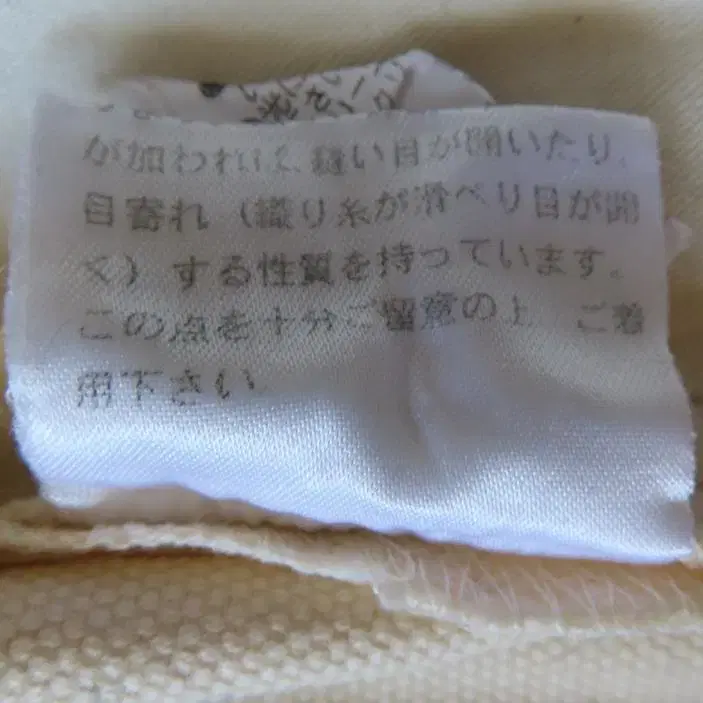 が加われば、縫い目が開いたり、
目寄れ（織り糸が滑べり目が開
く）する性質を持っています。
この点を十分ご留意の上 ご着
用下さい